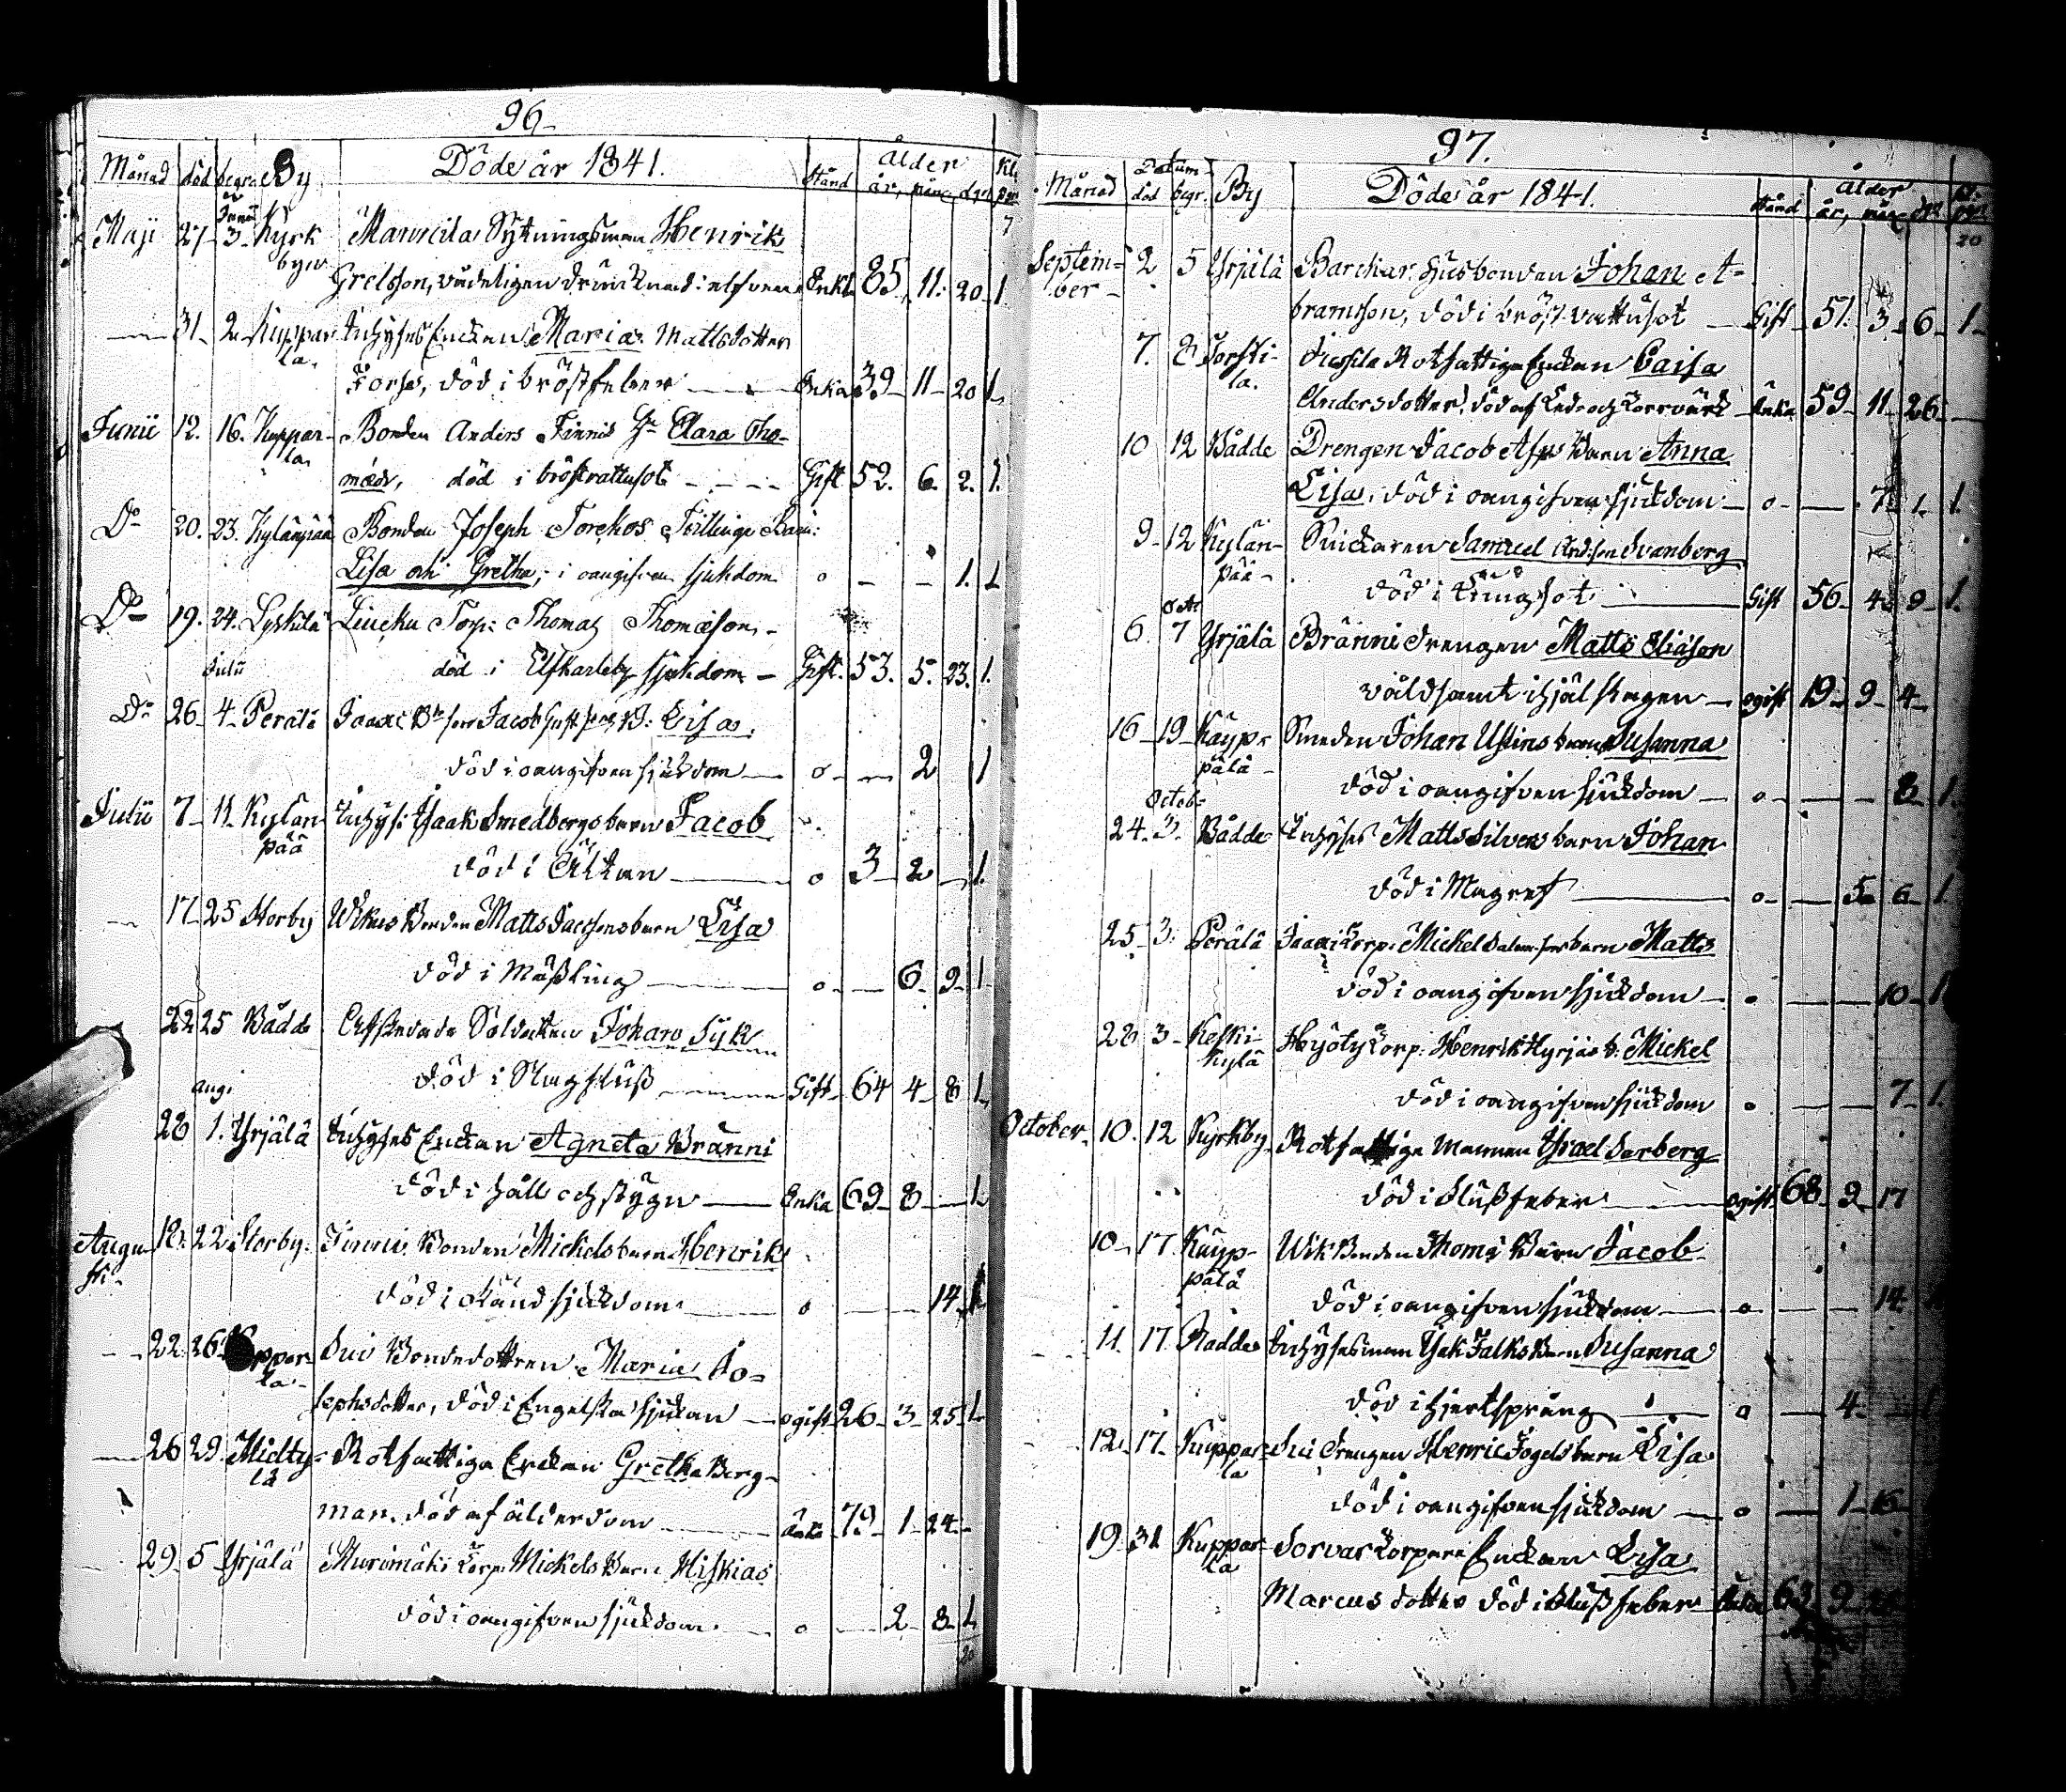 96
Månad död begr. By Döde år 1841. Stånd ålder
år, mån, dgr
7
Junii
Maji 27 3 Kyrk Sytningsman Henrik
byn
Grelsson, drunknad i elfven Enkl. 85 11 20 1
31 2 Kuppar Inhyses Enckan Maria Mattsdotter
la.
Fors, död i bröstfeber Enka 39 11 20 1
Junii 12. 16. Kuppar- Bonden Anders Finnis H:u Clara Tho-
la
mædr, död i bröstvattusot Gift 52. 6. 2. 1.
D:o 20. 23. Kylänpää Bonden Joseph Torekos Tvillinge Barn:
Lisa och Gretha, i oangifven sjukdom o — — 1. 1
D:o 19. 24. Lyskilä Torp: Thomas Thomæson,
död i Elfkarleby sjukdom — Gift. 53. 5. 23. 1.
Julii
D:o 26 4 Perälä Jaaxi Jacob B: Lisa,
död i oangifven sjukdom o — 2 1
Julii 7 11 Kylän Inhys: Isaak Smedbergs barn Jacob
pää
död i Ältan o 3 2 — 1.
17 25 Storby Bonden Matts Jacobsons barn Lisa
död i Mässling o — 6 9 1
22 25 Bådde Afskedade Soldaten Johan Syk
död i Slagfluss Gift 64 4 8 1
aug:
28 1. Yrjälä Inhyses Enckan Agneta Bränni
död i håll och stygn Enka 69 8 — 1
Augu- 18. 22 Storby Finni Bonden Mickels barn Henrik
sti
död i okänd sjukdom o — — 14 1
22. 26. ppar- Sui Bondedottren Maria Jo-
la
sephsdotter, död i Engelska sjukan ogift 26 3 25 1
26 29 Mielty- Rotfattiga Enckan Gretha Berg-
lä
man, död af ålderdom änka 79 1 24
29 5 Yrjälä Murimäki Torp: Mickels Barn Hiskias
död i oangifven sjukdom. o — 2 8 1
20
97.
Månad Datum By Döde år 1841. Stånd ålder
död begr. år,
20
Septem- 2 5 Yrjälä Barckar husbonden Johan A-
ber
bramsson, död i bröstvattusot Gift 51. 3 6 1
7. 8 Torsti- Jussila Rotfattiga Enckan Caisa
la.
Andersdotter, död af Led- och Torrvärk Enka 59 11 26
10 12 Bådde Drengen Jacob Asps Barn Anna
Lisa, död i oangifven sjukdom o — 7 1 1
9 12 Kylän- Snickaren Samuel And:son Svanberg
pää
död i lungsot Gift 56 4 9 1.
Oct
6 7 Yrjälä Bränni drengen Matts Eliason
våldsamt ihjälslagen ogift 19 9 4
16 19 Käyp- Smeden Johan Ustins barn Susanna
pälä
död i oangifven sjukdom o — — 8 1.
Octob:
24. 3. Bådde Inhyses Matts Silvers barn Johan
död i Magref o — 5 6 1
25 3. Perälä Jaaxi Torp: Mickel barn Matts
död i oangifven sjukdom o — — 10 1
28 3 Keski- Höyöty Torp: Henrik b: Mickel
kylä
död i oangifven sjukdom o — — 7 1.
October. 10. 12 Kyrkby Rotfattiga Mannen Israel Sarberg
död i Flussfeber ogift 68 2 17
10 17 Käyp- Wik Bonden Thomæ Barn Jacob
pälä
död i oangifven sjukdom o — — 14
11 17 Bådde Inhysesman Isak Falks Barn Susanna
död i hjertsprång o — 4
12 17 Kuppar- Sui drengen Henric Fogels barn Lisa
la
död i oangifven sjukdom o — 1
19 31 Kuppar- Sorvar Torpare Enckan Lisa
la
Marcus dotter död i Flussfeber Enka 63 9